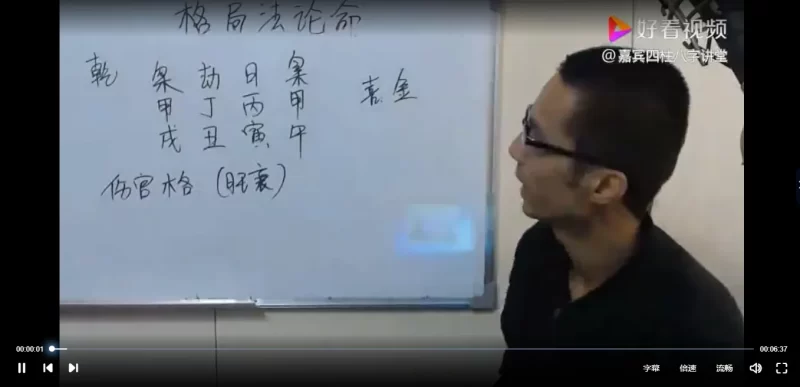 格局法论命
好看视频
@嘉宾四柱八字讲堂
乾 枭 劫 日 枭
甲 丁 丙 甲 喜金
戌 丑 寅 午
伤官格（旺衰）
00:00:01
00:06:37
字幕 倍速 流畅